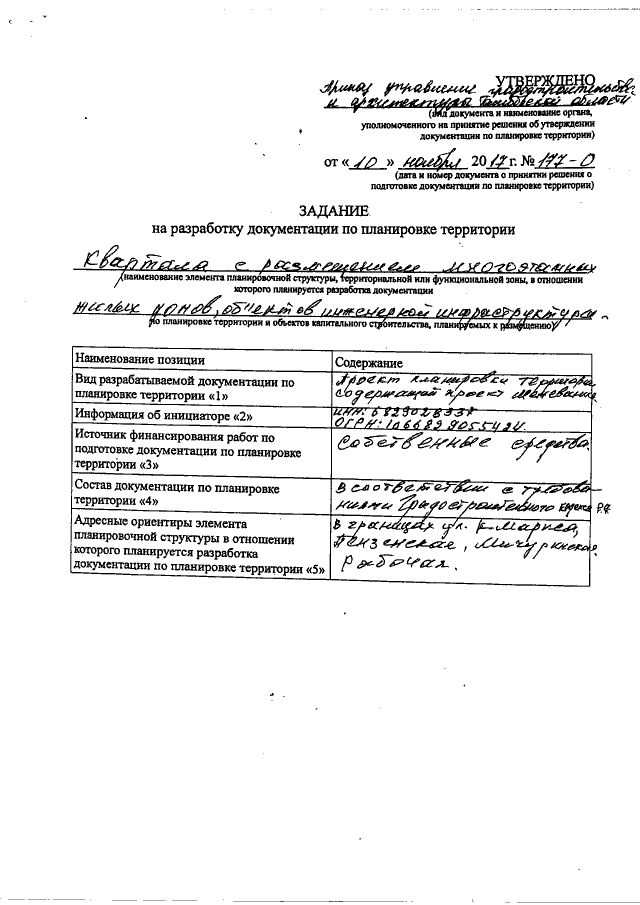 УТВЕРЖДЕНО
Приказ управление градостроительства
и архитектуры Тамбовской области
(вид документа и наименование органа,
уполномоченного на принятие решения об утверждении
документации по планировке территории)
от «10» ноября 2017г. № 177-О
(дата и номер документа о принятии решения о
подготовке документации по планировке территории)
ЗАДАНИЕ
на разработку документации по планировке территории
Квартала с размещением многоэтажных
(наименование элемента планировочной структуры, территориальной или функциональной зоны, в отношении
которого планируется разработка документации
жилых домов, объектов инженерной инфраструктуры.
по планировке территории и объектов капитального строительства, планируемых к размещению)
Наименование позиции
Содержание
Вид разрабатываемой документации по
планировке территории «1»
Проект планировки территории,
содержащий проект межевания
Информация об инициаторе «2»
ИНН:
ОГРН:
Источник финансирования работ по
подготовке документации по планировке
территории «3»
Собственные средства.
Состав документации по планировке
территории «4»
В соответствии с требова-
ниями Градостроительного кодекса РФ
Адресные ориентиры элемента
планировочной структуры в отношении
которого планируется разработка
документации по планировке территории «5»
В границах ул. К-Маркса,
Пензенская, Мичуринская
Рабочая.